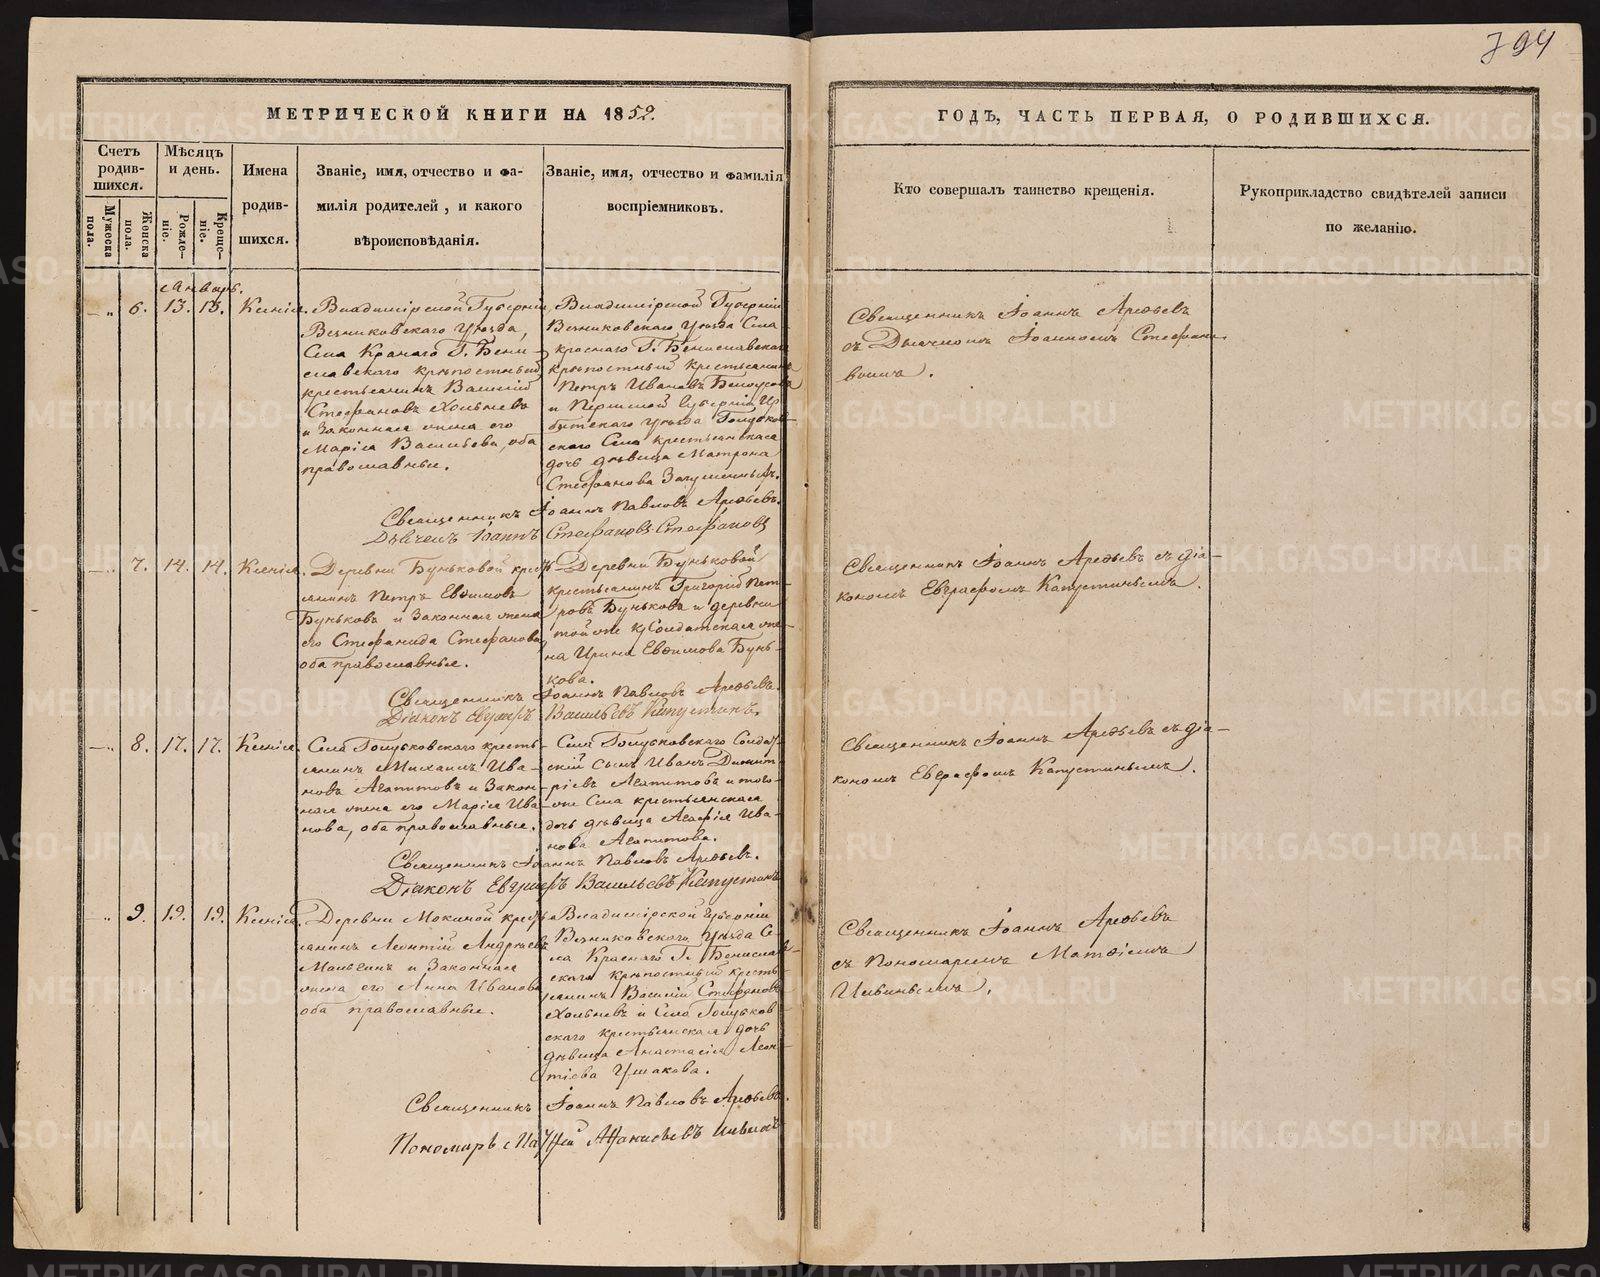 794
МЕТРИЧЕСКОЙ КНИГИ НА 1852.
ГОДЪ, ЧАСТЬ ПЕРВАЯ, О РОДИВШИХСЯ.
Счетъ родив-шихся.
Мужеска пола.
Женска пола.
Мѣсяцъ и день.
Рожде-ніе.
Креще-ніе.
Имена родив-шихся.
Званіе, имя, отчество и фа-
милія родителей, и какого
вѣроисповѣданія.
Званіе, имя, отчество и фамилія
воспріемниковъ.
Кто совершалъ таинство крещенія.
Рукоприкладство свидѣтелей записи
по желанію.
Январь.
6. 13. 13. Ксенія.
Владимірской Губерніи
Вязниковскаго Уѣзда,
Села Краснаго Г. Бени-
славскаго крѣпостный
крестьянинъ Василій
Стефановъ Хольневъ
и Законная жена его
Марія Васильева, оба
православные.
Владимірской Губерніи
Вязниковскаго Уѣзда Села
Краснаго Г. Бениславскаго
крѣпостный крестьянинъ
Петръ Ивановъ Бѣлоусовъ
и Пермской Губерніи Ир-
битскаго Уѣзда Голубков-
скаго Села крестьянская
дочь дѣвица Матрона
Стефанова
Священникъ Іоаннъ Павловъ Арефьевъ.
Дьячекъ Іоаннъ Стефановъ Стефановъ
Священникъ Іоаннъ Арефьевъ
съ Дьячкомъ Іоанномъ Стефано-
вымъ.
7. 14. 14. Ксенія.
Деревни Буньковой кресть-
янинъ Петръ Евѳимовъ
Буньковъ и Законная жена
его Стефанида Стефанова
оба православные.
Деревни Буньковой
крестьянинъ Григорій Пет-
ровъ Буньковъ и деревни
той же Солдатская же-
на Ирина Евѳимова Бунь-
кова.
Священникъ Іоаннъ Павловъ Арефьевъ.
Діаконъ Евграфъ Васильевъ Капустинъ.
Священникъ Іоаннъ Арефьевъ съ діа-
кономъ Евграфомъ Капустинымъ.
8. 17. 17. Ксенія.
Села Голубковскаго кресть-
янинъ Михаилъ Ива-
новъ Агапитовъ и Закон-
ная жена его Марія Ива-
нова, оба православные.
Села Голубковскаго Солдат-
скій сынъ Иванъ Димит-
ріевъ Агапитовъ и того-
же Села крестьянская
дочь дѣвица Агафія Ива-
нова Агапитова.
Священникъ Іоаннъ Павловъ Арефьевъ.
Діаконъ Евграфъ Васильевъ Капустинъ
Священникъ Іоаннъ Арефьевъ съ діа-
кономъ Евграфомъ Капустинымъ.
9. 19. 19. Ксенія.
Деревни Мокиной кресть-
янинъ Леонтій Андреевъ
и Законная
жена его Анна Иванова
оба православные.
Владимірской Губерніи
Вязниковскаго Уѣзда Се-
ла Краснаго Г. Бенислав-
скаго крѣпостный кресть-
янинъ Василій Стефановъ
Хольневъ и Села Голубков-
скаго крестьянская дочь
дѣвица Анастасія Леон-
тіева Ушакова.
Священникъ Іоаннъ Павловъ Арефьевъ.
Пономарь Матѳій Афанасьевъ Ильинъ
Священникъ Іоаннъ Арефьевъ
съ Пономаремъ Матѳіемъ
Ильинымъ.
METRIKI.GASO-URAL.RU